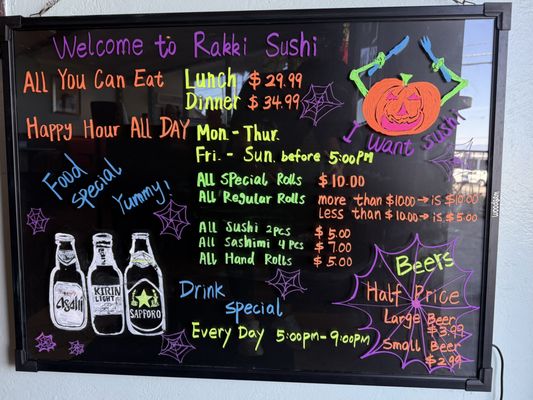 Welcome to Rakki Sushi
All You Can Eat Lunch $29.99
Dinner $34.99
Happy Hour All DAY
Mon. - Thur.
Fri. - Sun. before 5:00pm
I Want Sushi
Food special
Yummy!
All Special Rolls $10.00
All Regular Rolls more than $10.00 → is $10.00
Less than $10.00 → is $5.00
All Sushi 2pcs $5.00
All Sashimi 4pcs $7.00
All Hand Rolls $5.00
Asahi
KIRIN
LIGHT
SAPPORO
Drink special
Every Day 5:00pm-9:00pm
Beers
Half Price
Large Beer
$3.99
Small Beer
$2.99